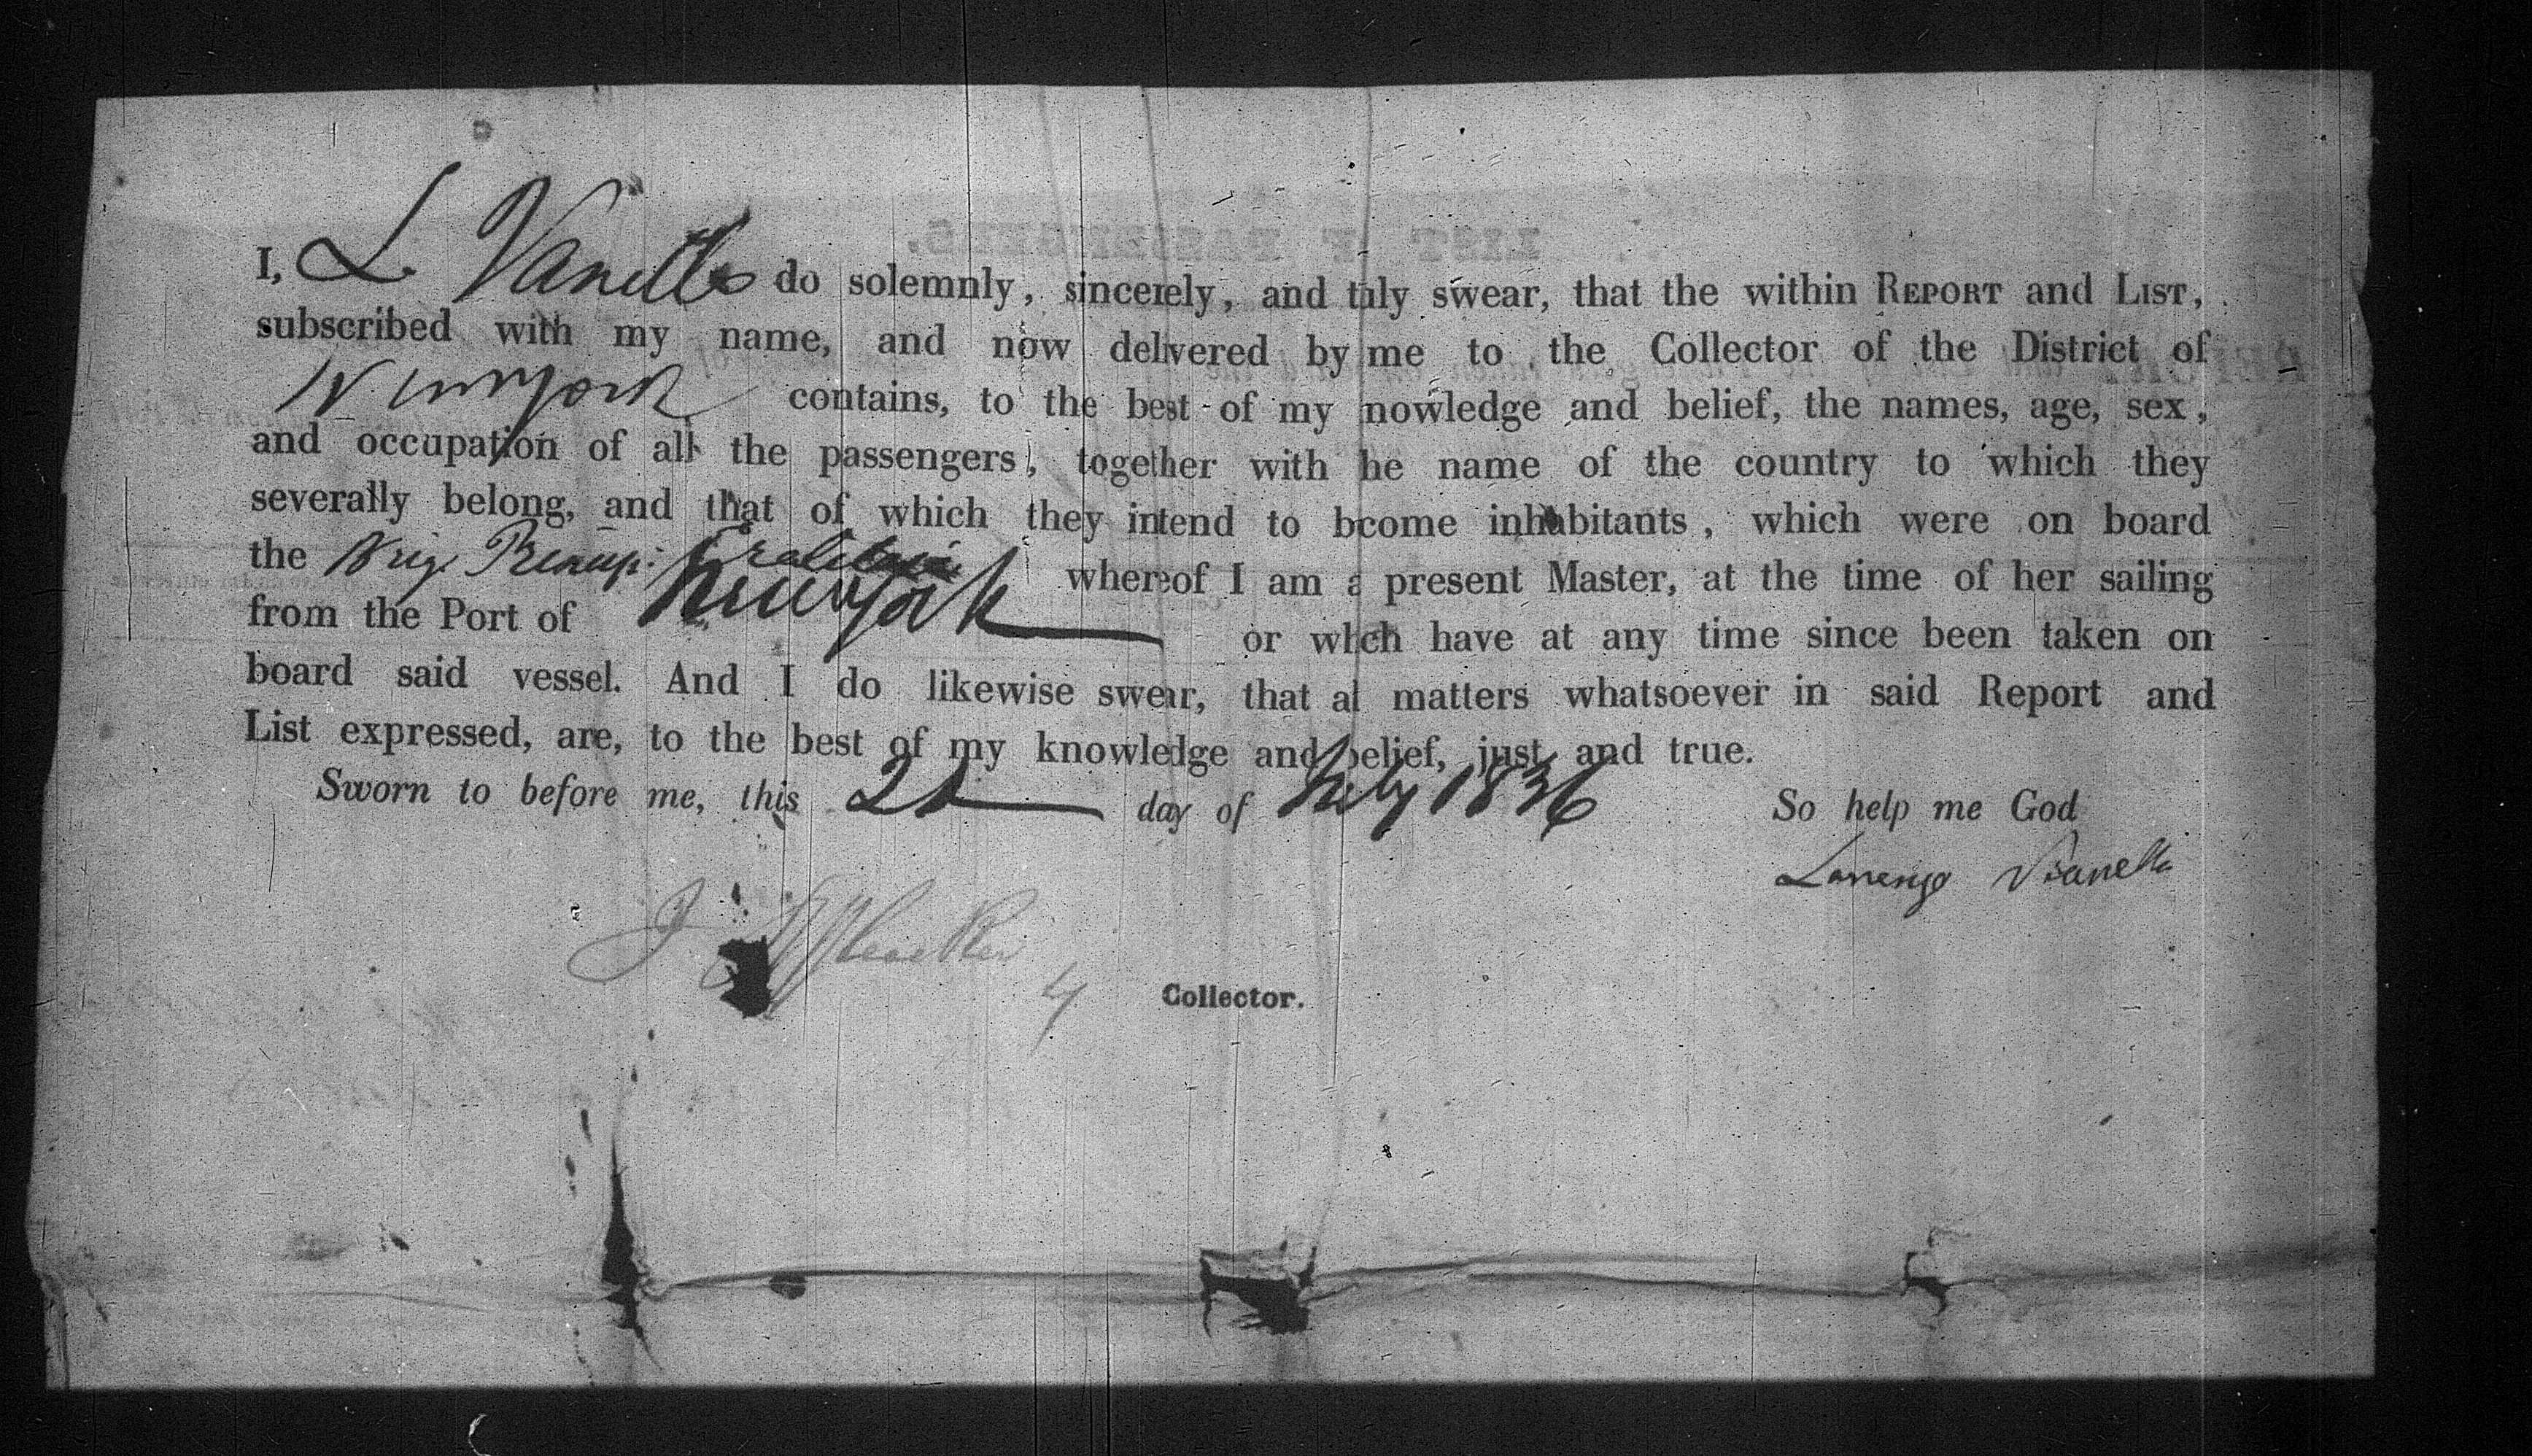 I, L Vanello do solemnly, sincerely, and tuly swear, that the within REPORT and LIST,
subscribed with my name, and now delivered by me to the Collector of the District of
New York contains, to the best of my nowledge and belief, the names, age, sex,
and occupation of all the passengers, together with he name of the country to which they
severally belong, and that of which they intend to bcome inhabitants, which were on board
the Brig whereof I am a present Master, at the time of her sailing
from the Port of New York or which have at any time since been taken on
board said vessel. And I do likewise swear, that al matters whatsoever in said Report and
List expressed, are, to the best of my knowledge and belief, just and true.
Sworn to before me, this day of July 1836 So help me God
Lorenzo Vianello
Collector.
LIST OF PASSENGERS,